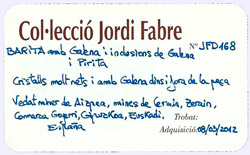 Col·lecció Jordi Fabre
Nº JFD168
BARITA amb Galena i inclusions de Galena
i Pirita
Cristalls molt nets i amb Galena dins i fora de la peça
Vedat miner de Aizpea, mines de Cerain, Berain,
Comarca Goierri, Gipuzkoa, Euskadi,
España
Trobat:
Adquisició: 08/03/2012